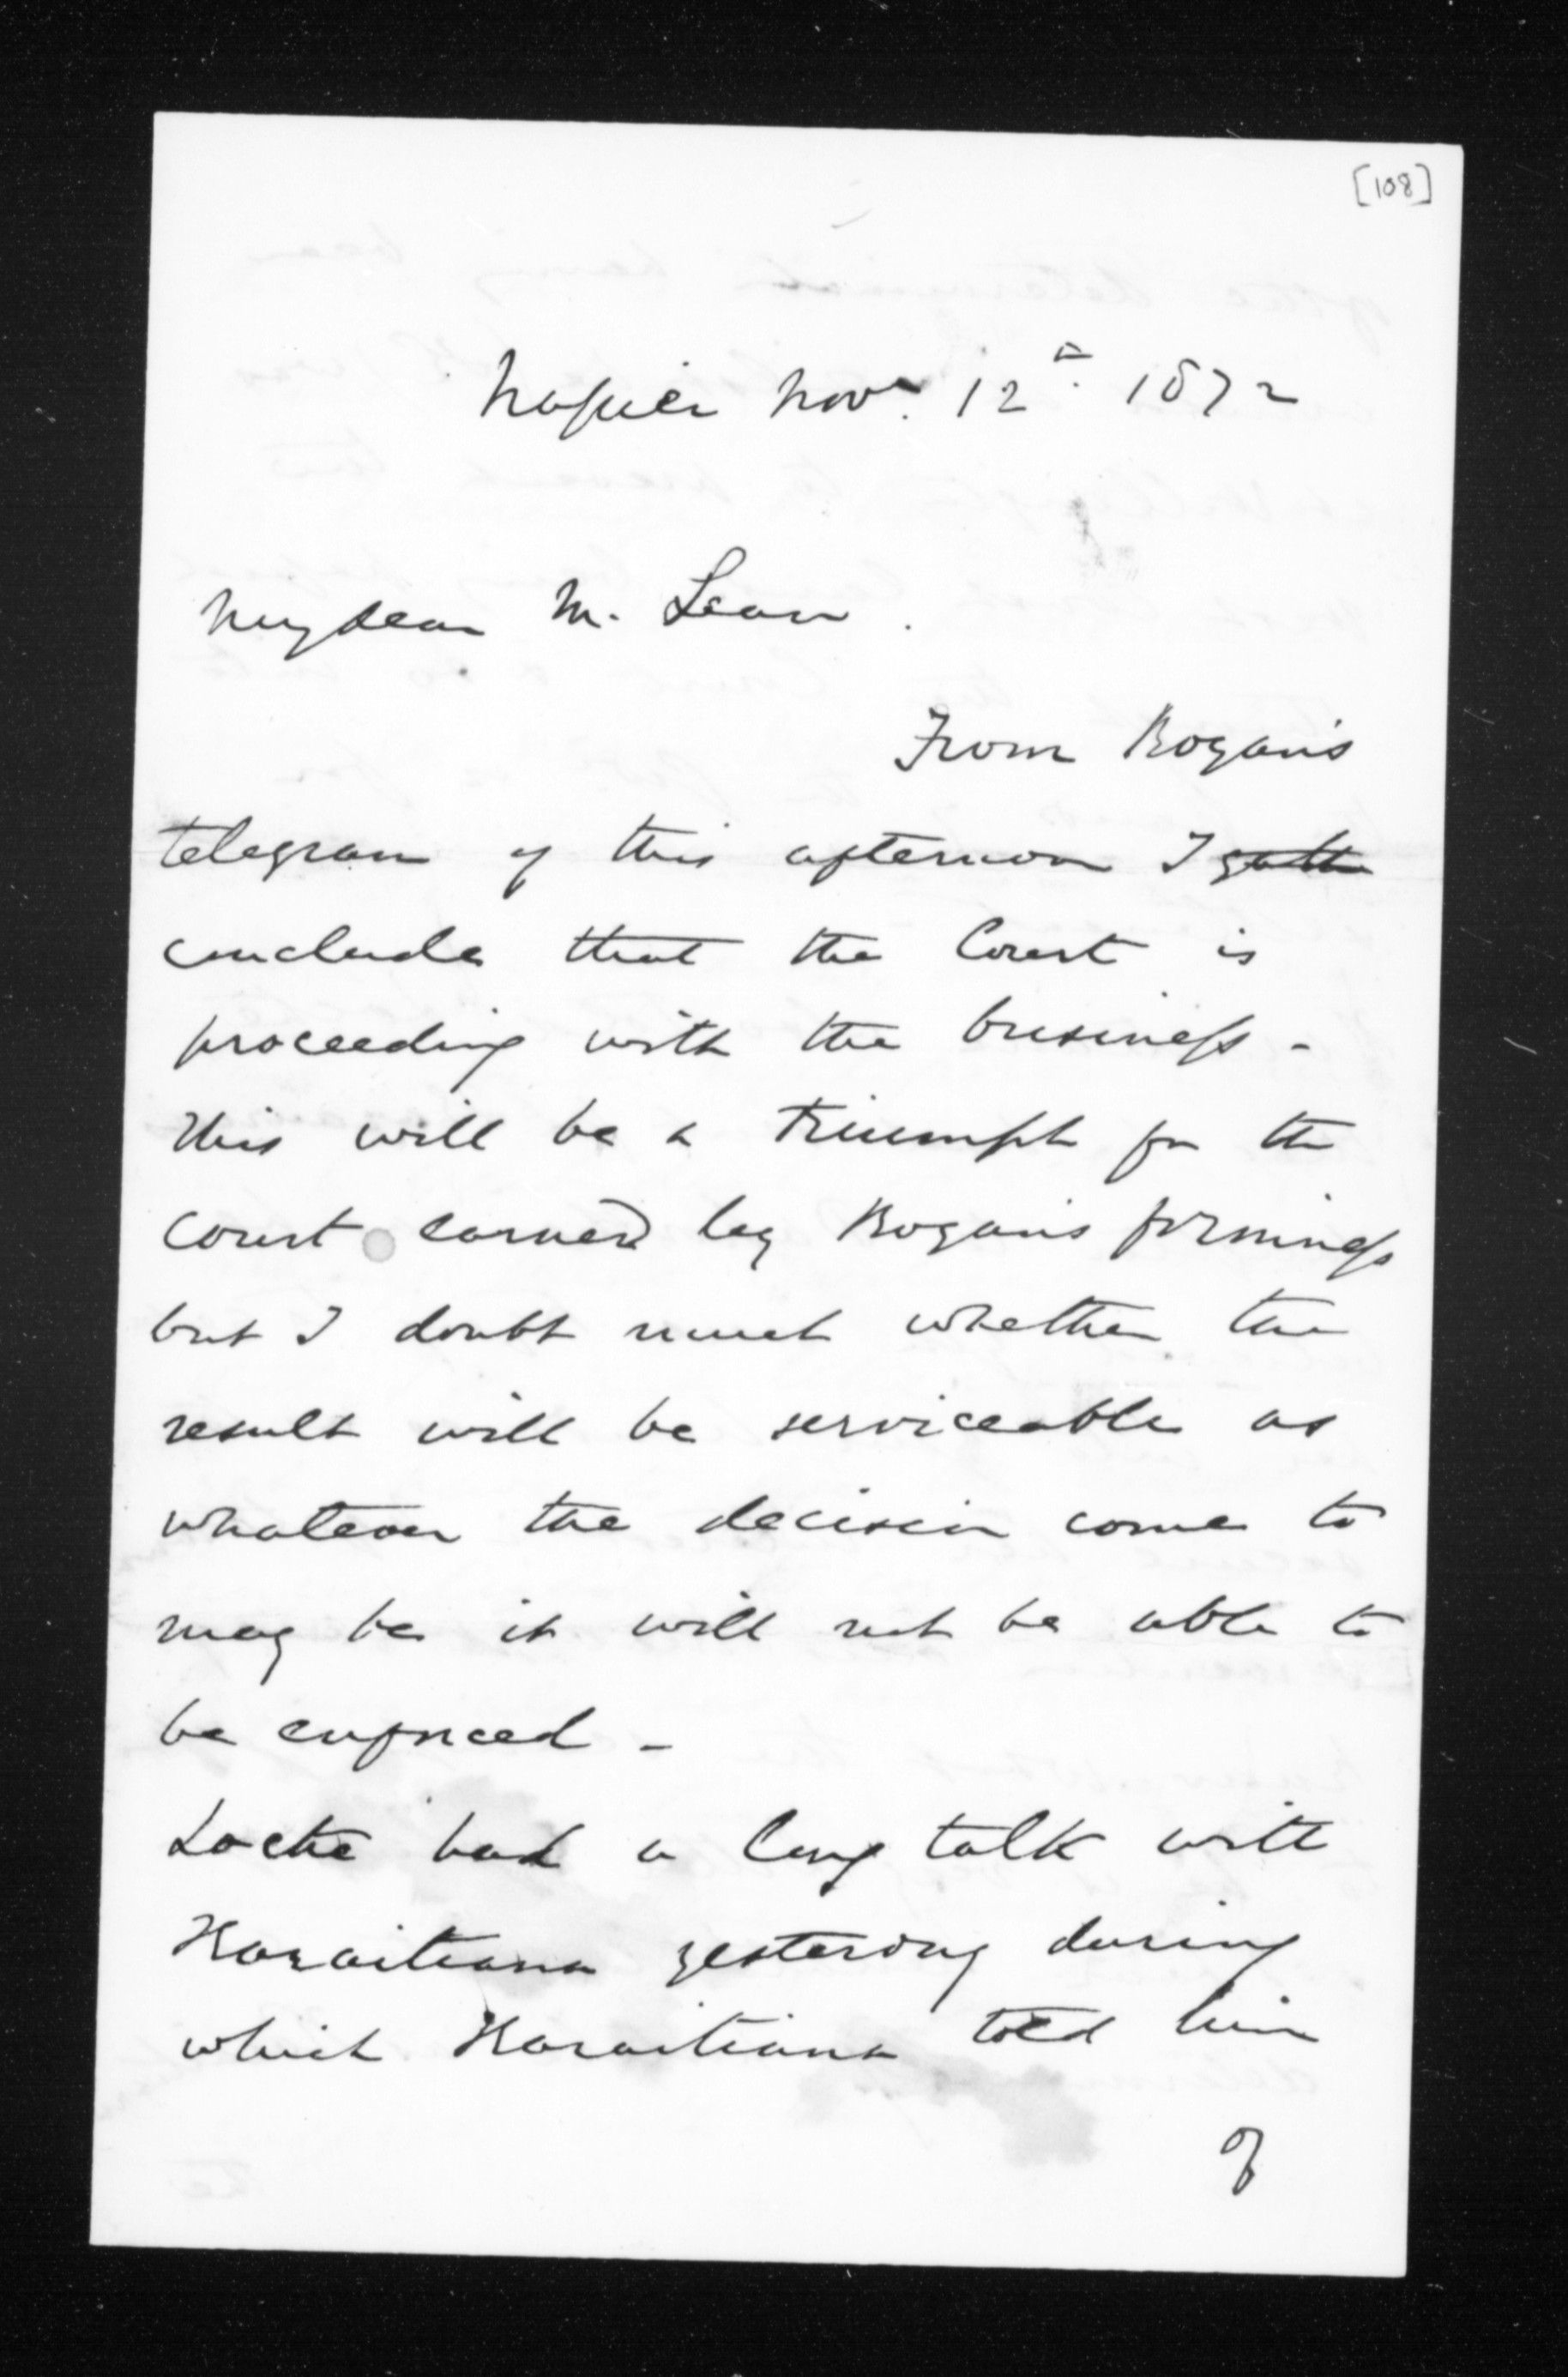 [108]
Napier Novr. 12th. 1872
My dear Mr. Lean.
From Rogan's
telegram of this afternoon I gathe
conclude that the Court is
proceeding with the business -
This will be a triumph for the
Court earned by Rogan's firmness
but I doubt much whether the
result will be serviceable as
whatever the decision come to
may be it will not be able to
be enforced -
Locke had a long talk with
Karaitiana yesterday during
which Karaitiana told him
of